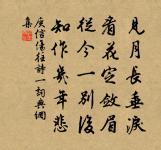 見月長垂淚
看花定斂眉
從今一別後
知作幾年悲
庾信傷往詩一詞典網
集